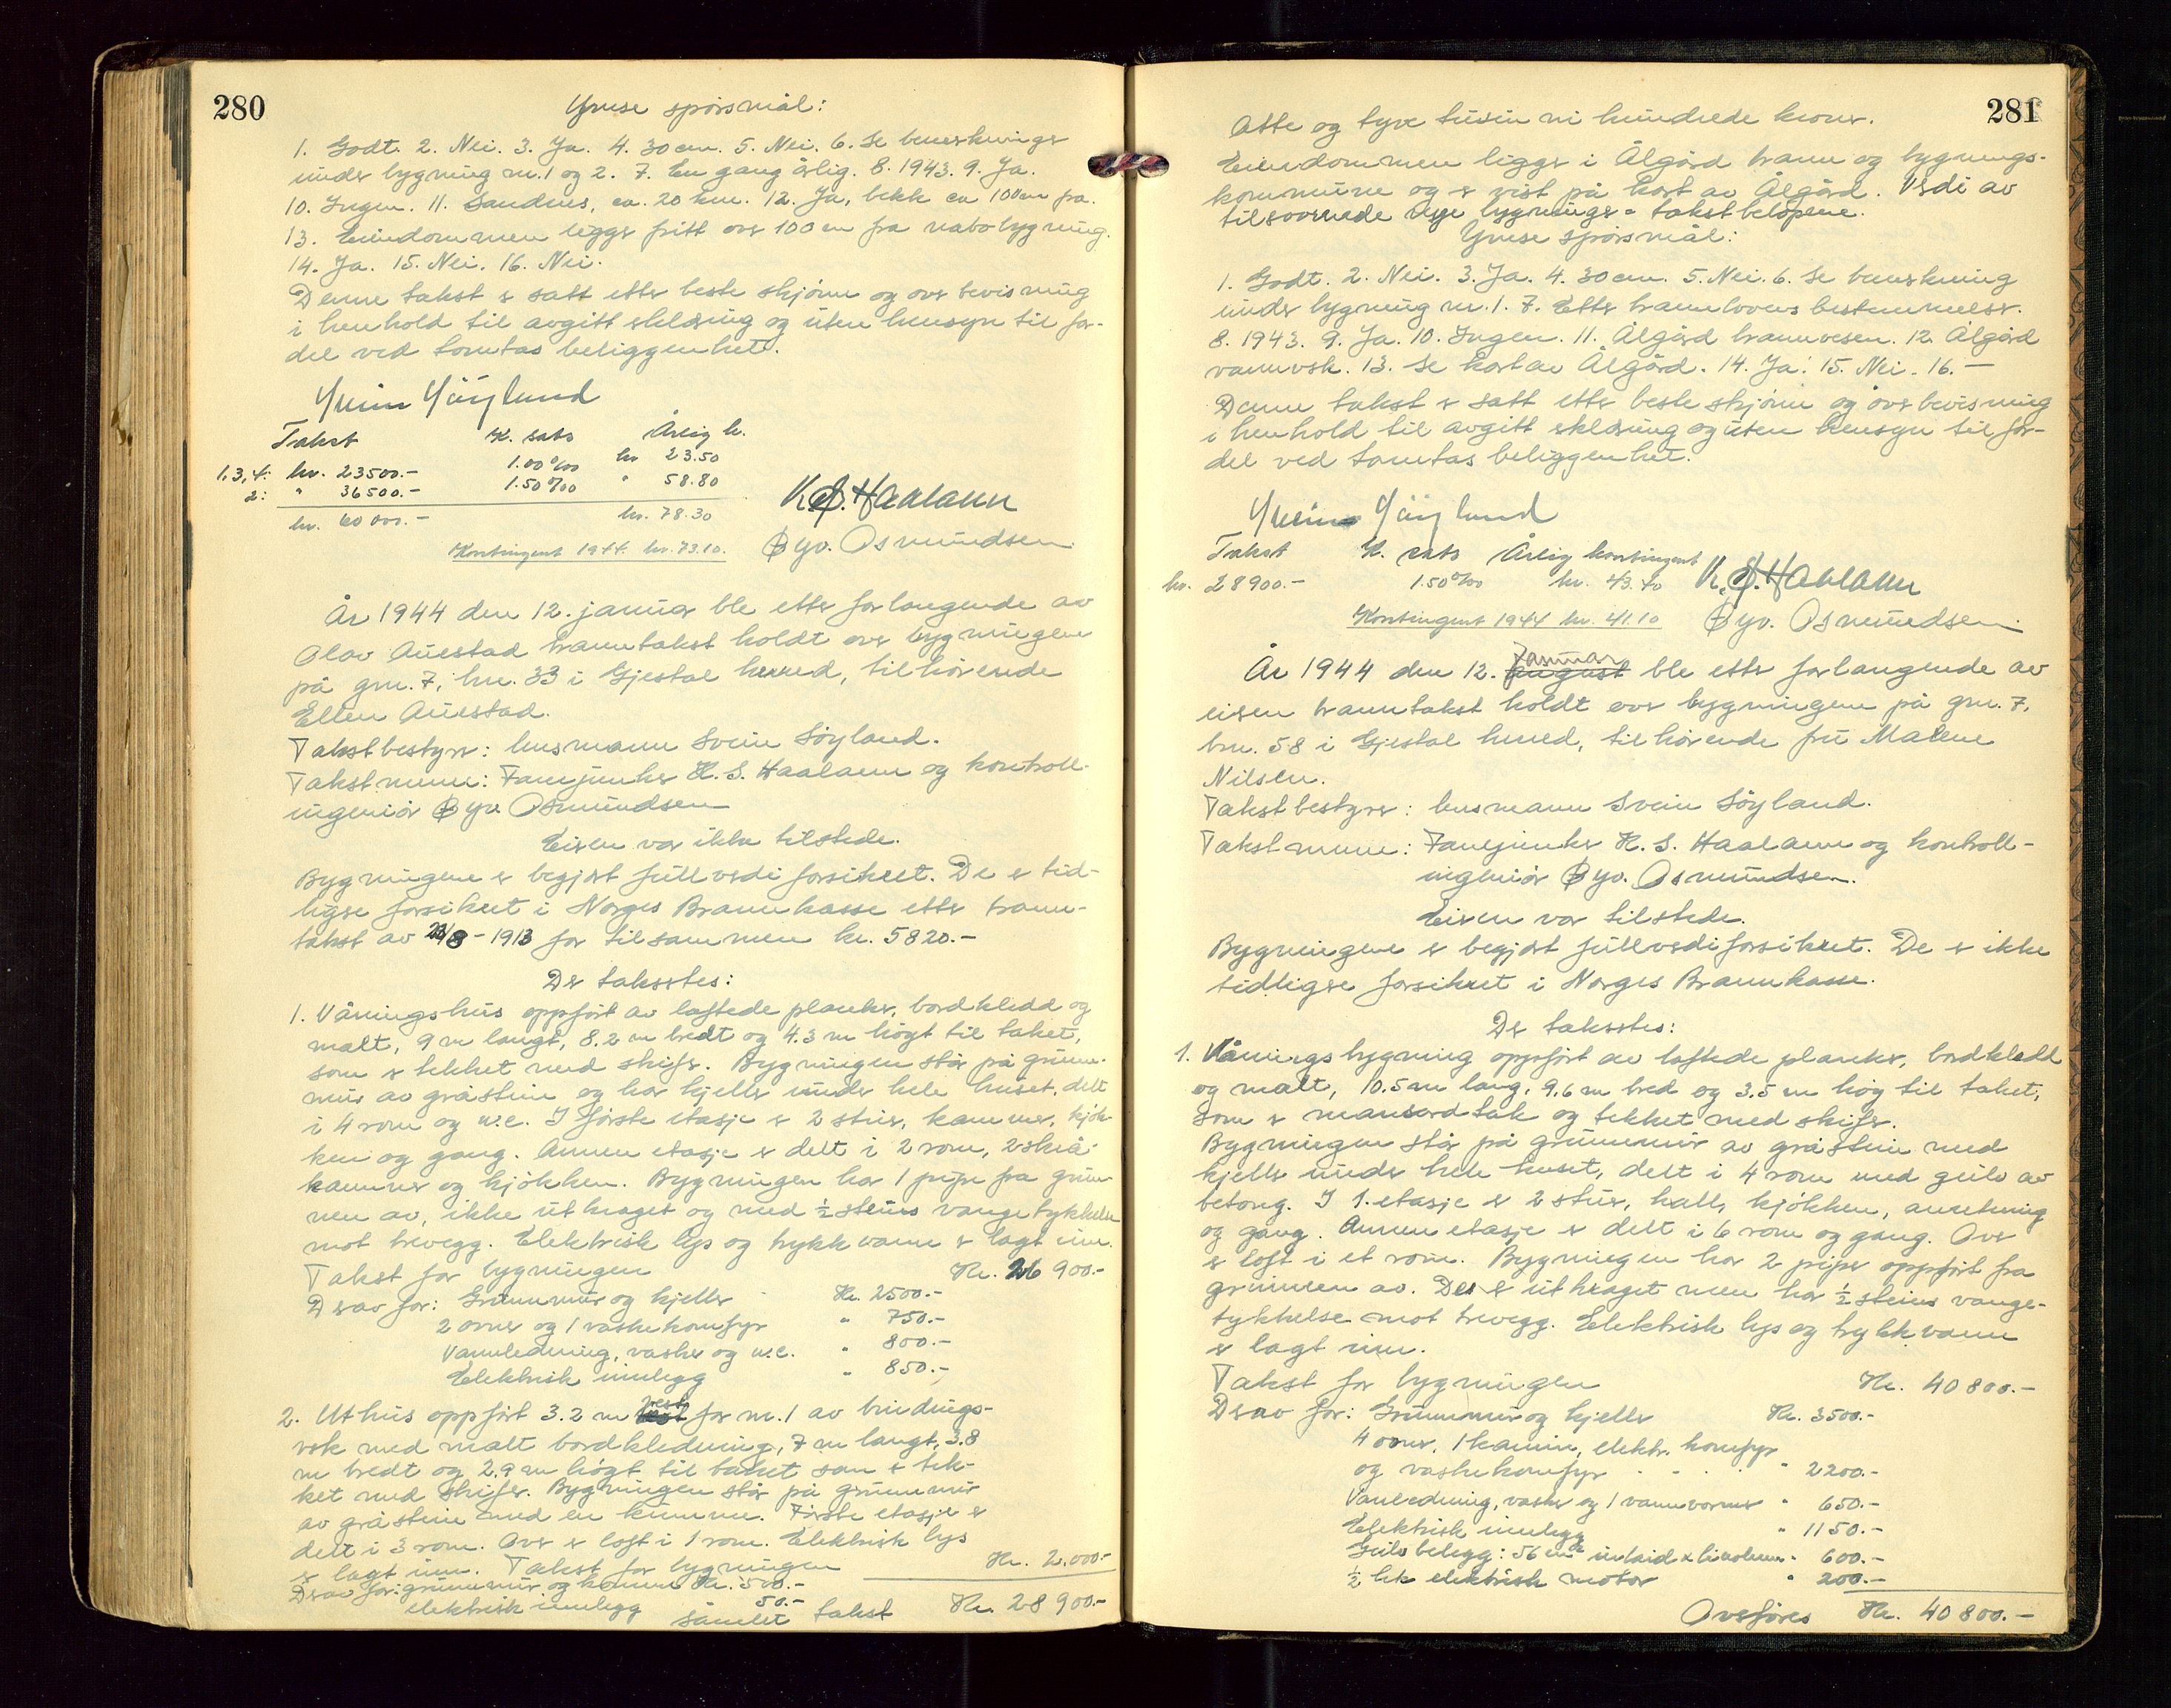 280
Ymse spörsmål:
1. Godt. 2. Nei. 3. Ja. 4. 30 cm. 5. Nei. 6. Se beskrivings
under bygning nr. 1 og 2. 7. En gang årlig. 8. 1943. 9. Ja.
10. Ingen. 11. Sandnes, ca. 20 km. 12. Ja, bekk ca 100 m fra.
13. Eiendommen ligger fritt over 100 m fra nabobygning.
14. Ja. 15. Nei. 16. Nei.
Denne takst er satt etter beste skjönn og overbevisning
i henhold til avgitt erklæring og uten hensyn til for-
del ved tomtas beliggenhet.
Svein Söyland
Takst K. sats Årlig k.
1,3,4: kr. 23500.- 1.00 ‰ kr 23.50
2: " 36500.- 1.50 ‰ " 58.80
kr. 60000.- kr. 78.30
Kontingent 1944 kr. 73.10.
K. S. Haaland
Öyv. Osmundsen
År 1944 den 12. januar ble etter forlangende av
Olav Auestad branntakst holdt over bygningene
på gnr. 7, bnr. 33 i Gjestal herred, tilhörende
Ellen Auestad.
Takstbestyrer: lensmann Svein Söyland.
Takstmenn: Fanejunker K. S. Haaland og kontroll-
ingeniör Öyv. Osmundsen
Eieren var ikke tilstede.
Bygningene er begjært fullverdiforsikret. De er tid-
ligere forsikret i Norges Brannkasse etter brann-
takst av 23/8-1913 for tilsammen kr. 5820.-
Der takseres:
1. Våningshus oppfört av laftede planker, bordkledd og
malt, 9 m langt, 8.2 m bredt og 4.3 m högt til taket,
som er tekket med skifer. Bygningen står på grunn-
mur av gråstein og har kjeller under hele huset, delt
i 4 rom og w.c. I förste etasje er 2 stuer, kammer, kjök-
ken og gang. Annen etasje er delt i 2 rom, 2 skrå-
kammer og kjökken. Bygningen har 1 pipe fra grun-
nen av, ikke utkraget og med ½ steins vangetykkelse
mot trevegg. Elektrisk lys og trykkvann er lagt inn.
Takst for bygningen Kr. 26 900.-
Derav for: Grunnmur og kjeller Kr. 2500.-
2 ovner og 1 vaskekomfyr " 750.-
Vannledning, vasker og w.c. " 800.-
Elektrisk innlegg " 850.-
2. Uthus oppfört 3.2 m vest for nr. 1 av bindings-
verk med malt bordkledning, 7 m langt, 3.8
m bredt og 2.9 m högt til taket som er tek-
ket med skifer. Bygningen står på grunnmur
av gråstein med en kumme. Förste etasje er
delt i 3 rom. Over er loft i 1 rom. Elektrisk lys
er lagt inn. Takst for bygningen Kr. 2.000.-
Derav for: grunnmur og kumme Kr. 500.-
elektrisk innlegg 50.-
Samlet takst Kr. 28 900.-
281
Åtte og tyve tusen ni hundrede kroner.
Eiendommen ligger i Ålgård brann og bygnings-
kommune og er vist på kart av Ålgård. Verdi av
tilsvarende nye bygninger = takstbelöpene.
Ymse spörsmål:
1. Godt. 2. Nei. 3. Ja. 4. 30 cm. 5. Nei. 6. Se beskrivning
under bygning nr. 1. 7. Etter brannlovens bestemmelser.
8. 1943. 9. Ja. 10. Ingen. 11. Ålgård brannvesen. 12. Ålgård
vannverk. 13. Se kart av Ålgård. 14. Ja. 15. Nei. 16. –
Denne takst er satt etter beste skjönn og overbevisning
i henhold til avgitt erklæring og uten hensyn til for-
del ved tomtas beliggenhet.
Svein Söyland
Takst K. sats Årlig kontingent
kr. 28900.- 1.50 ‰ kr. 43.40
Kontingent 1944 kr. 41.10
K. S. Haaland
Öyv. Osmundsen
År 1944 den 12. august januar ble etter forlangende av
eieren branntakst holdt over bygningene på gnr. 7,
bnr. 58 i Gjestal herred, tilhörende fru Malene
Nilsen.
Takstbestyrer: lensmann Svein Söyland.
Takstmenn: Fanejunker K. S. Haaland og kontroll-
ingeniör Öyv. Osmundsen.
Eieren var tilstede.
Bygningene er begjært fullverdiforsikret. De er ikke
tidligere forsikret i Norges Brannkasse.
Der takseres:
1. Våningsbygning oppfört av laftede planker, bordkledd
og malt, 10.5 m lang, 9.6 m bred og 3.5 m höy til taket,
som er mansardtak og tekket med skifer.
Bygningen står på grunnmur av gråstein med
kjeller under hele huset, delt i 4 rom med gulv av
betong. I 1. etasje er 2 stuer, hall, kjökken, anretning
og gang. Annen etasje er delt i 6 rom og gang. Over
er loft i et rom. Bygningen har 2 piper oppfört fra
grunnen av. Den er utkraget men har ½ steins vange-
tykkelse mot trevegg. Elektrisk lys og trykkvann
er lagt inn.
Takst for bygningen Kr. 40 800.-
Derav for: Grunnmur og kjeller Kr. 3500.-
4 ovner, 1 kamin, elektr. komfyr
og vaskekomfyr " 2200.-
Vannledning, vasker og 1 vannvarmer " 650.-
Elektrisk innlegg " 1150.-
Gulvbelegg: 56 m² inlaid x linoleum " 600.-
½ hk elektrisk motor " 200.-
Overföres Kr. 40 800.-